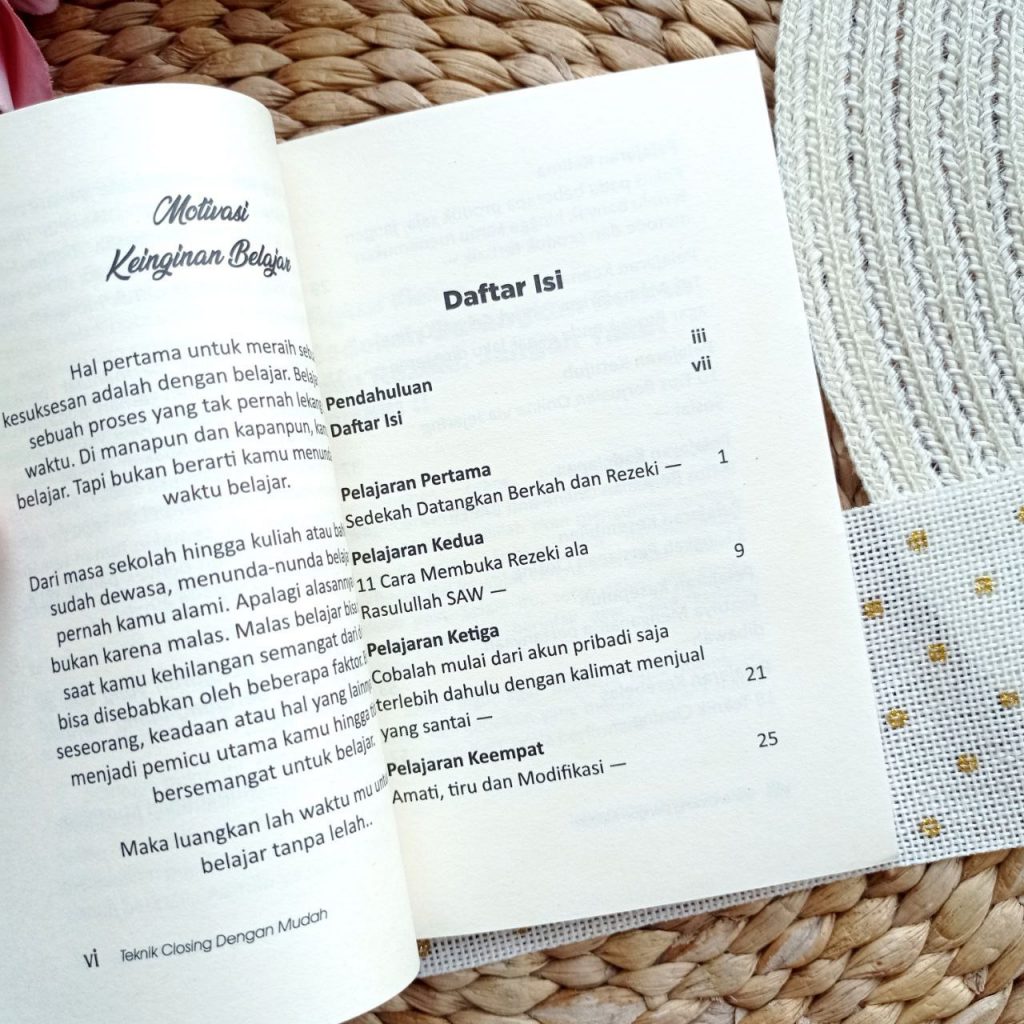 Motivasi
Keinginan Belajar
Hal pertama untuk meraih
kesuksesan adalah dengan belajar.
sebuah proses yang tak pernah
waktu. Di manapun dan kapanpun,
belajar. Tapi bukan berarti kamu
waktu belajar.
Dari masa sekolah hingga kuliah atau
sudah dewasa, menunda-nunda
pernah kamu alami. Apalagi
bukan karena malas. Malas belajar
saat kamu kehilangan semangat dari
bisa disebabkan oleh beberapa faktor.
seseorang, keadaan atau hal yang
menjadi pemicu utama kamu hingga
bersemangat untuk belajar.
Maka luangkan lah waktu mu
belajar tanpa lelah..
vi Teknik Closing Dengan Mudah
Daftar Isi
Pendahuluan iii
Daftar Isi vii
Pelajaran Pertama
Sedekah Datangkan Berkah dan Rezeki — 1
Pelajaran Kedua
11 Cara Membuka Rezeki ala
Rasulullah SAW — 9
Pelajaran Ketiga
Cobalah mulai dari akun pribadi saja
terlebih dahulu dengan kalimat menjual
yang santai — 21
Pelajaran Keempat
Amati, tiru dan Modifikasi — 25